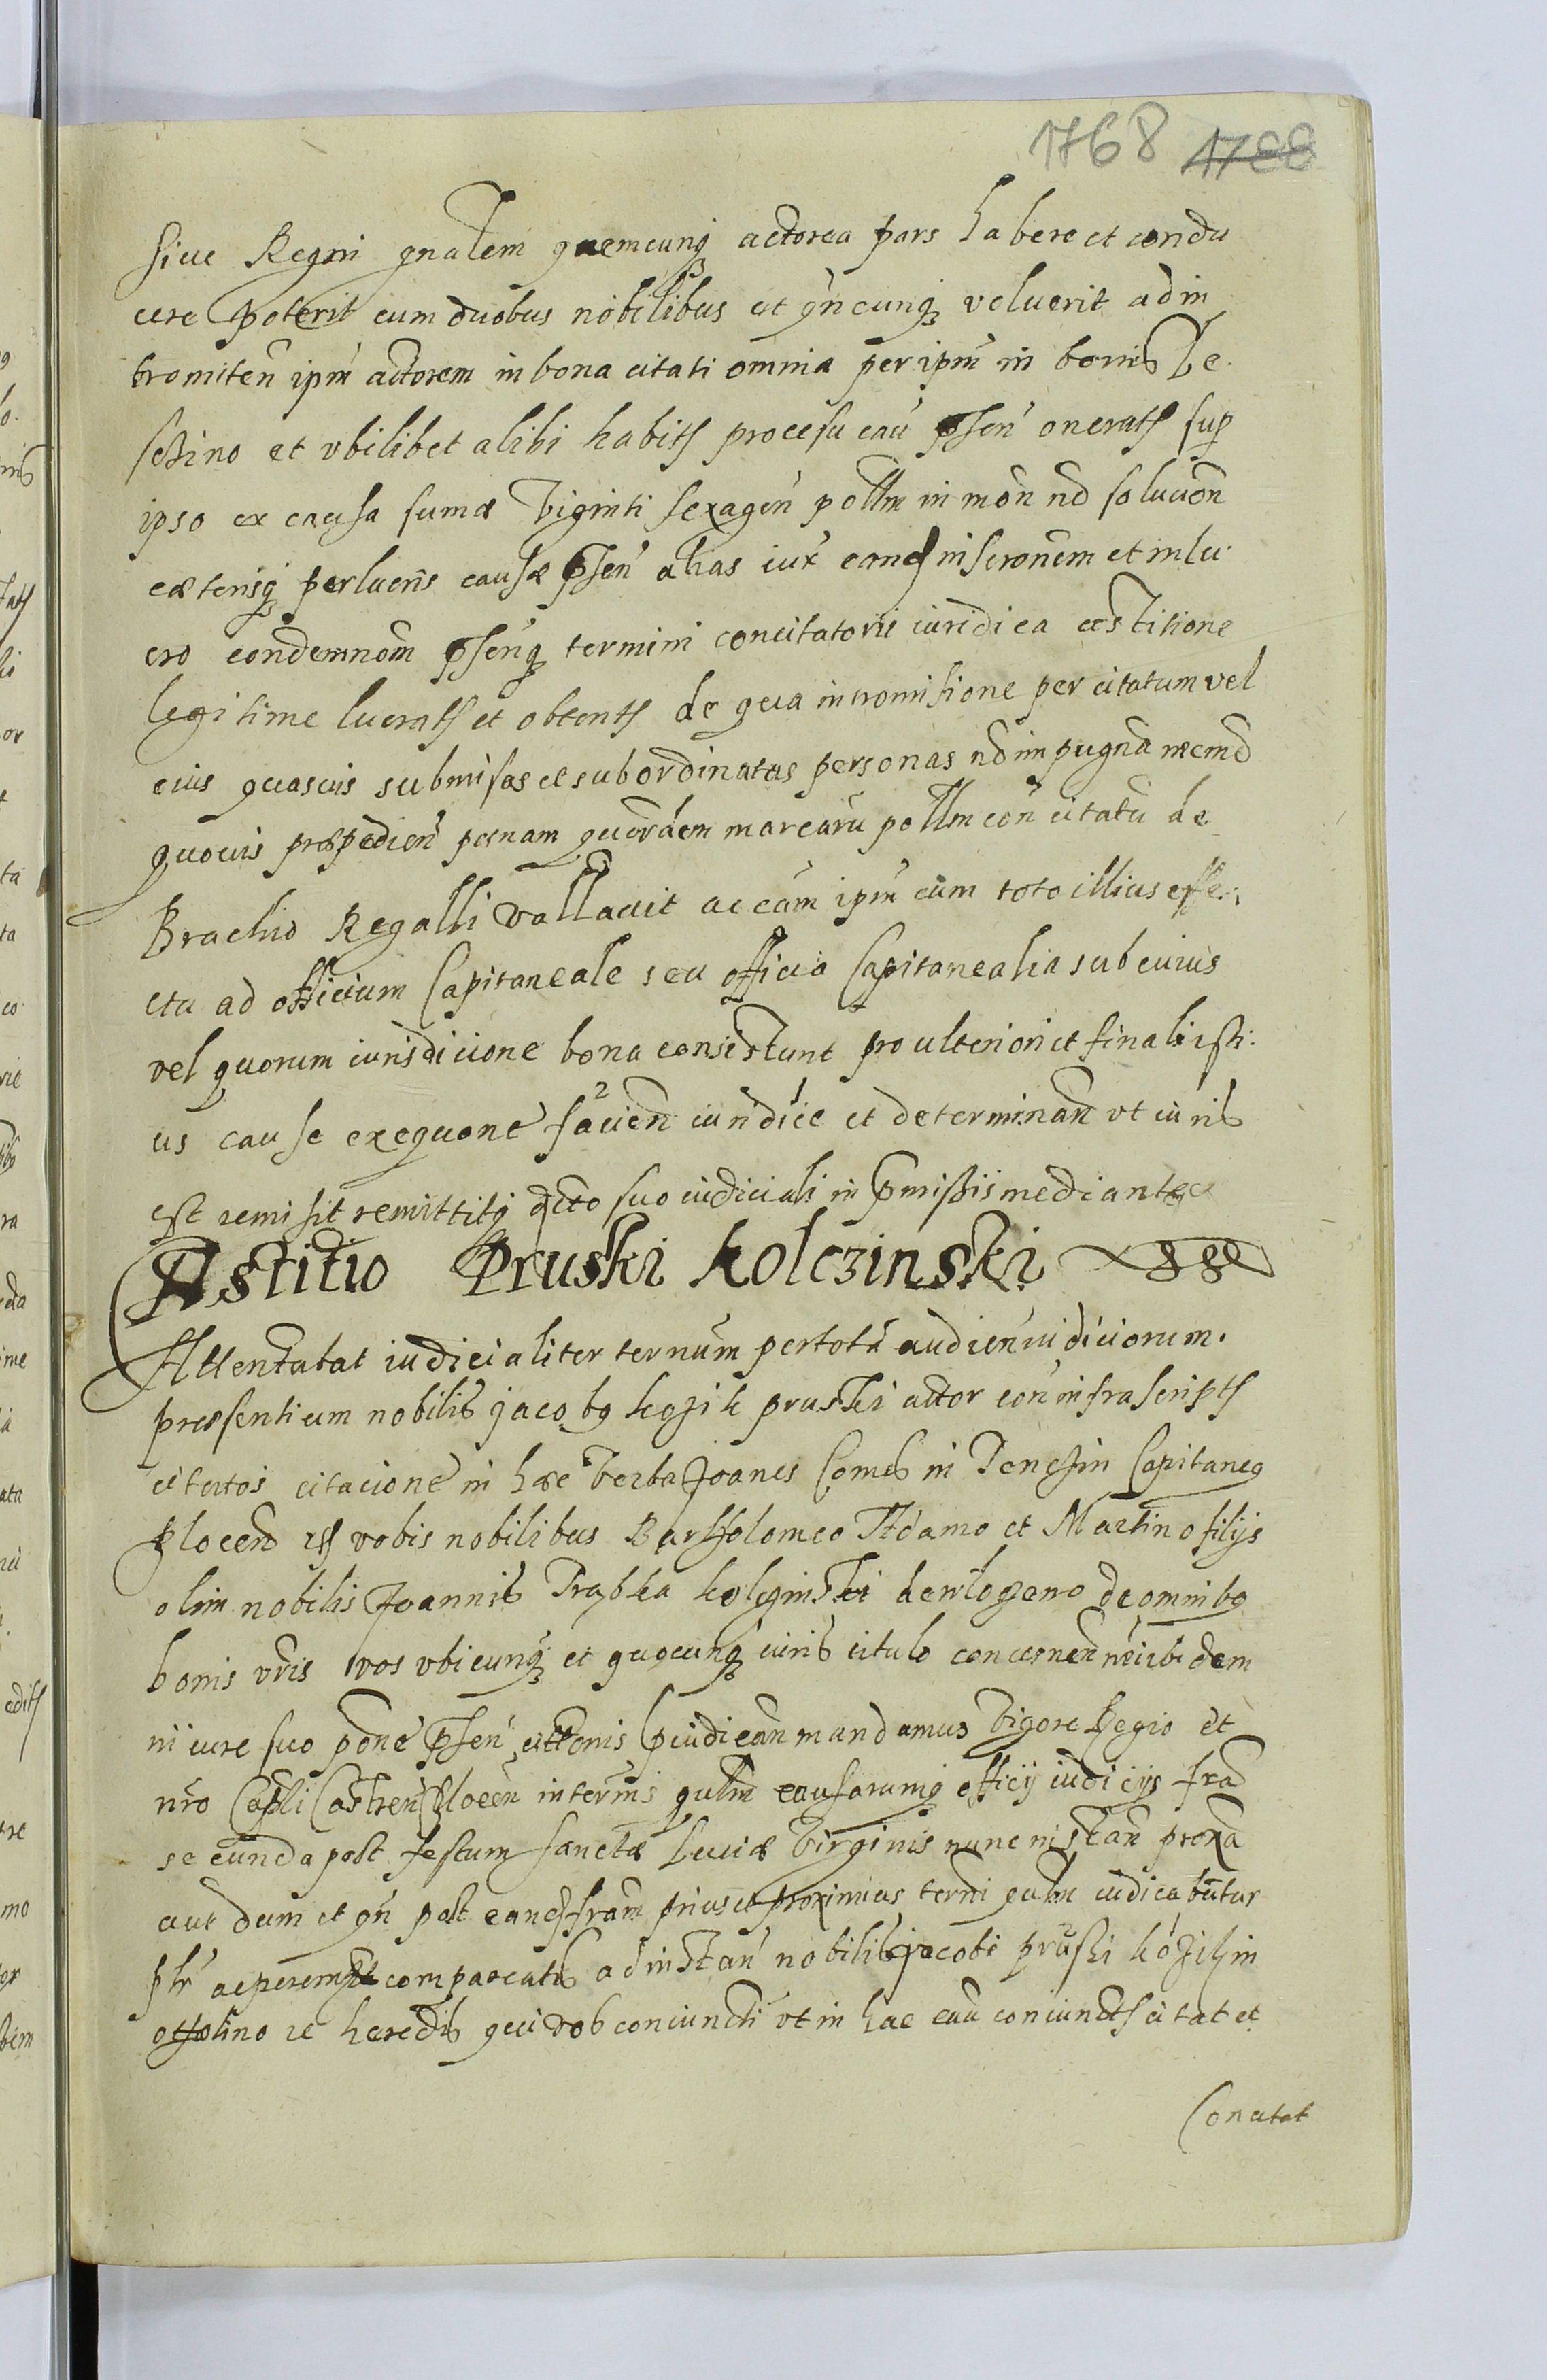 1768 1788
siue Regni gnalem quemcunq actorea pars habere et condu
cere poterit cum duobus nobilibus et qn̄cunq voluerit ad in
tromiten̄ ipm̄ actorem in bona citati omnia per ipm̄ in bonis Le
sczino et vbilibet alibi habits processu cau pn̄sen onerats sup
ipso ex causa sumæ viginti sexagen̄ pollm in mon nō solucion
cæterisq per lucris causæ pn̄sen alias iux eand inscronem et in lu
cro condemnom pn̄senq termini concitatorii iuridica astitione
legitime lucrats et obtents de qua intromisione per citatum vel
eius quascuis submisas et subordinatas personas nō impugnā nec md
quouis præpedien̄ pænam quordem marcarū pollm con̄ citatū de
Brachio Regalli vallauit ac cām ipm̄ cum toto illius effe
ctu ad officium Capitaneale seu officia Capitanealia sub cuius
vel quorum iurisdicione bona consistunt pro ulteriori et finali isti
us cause exequcone facien̄ iuridice et determinan̄ vt iuris
est remisit remittitq dcto suo iudiciali in pmissis mediante
Astitio Pruski Kolczinski
Attentabat iudicialiter ternum per totū audien̄ iudiciorum
præsentium nobilis Jacobq kozik pruski actor con̄ infrascripts
citatos citacione in hæc verba Joanes Comes in Tenczin Capitaneq
plocen̄ vobis nobilibus Bartholomeo Adamo et Martino filijs
olim nobilis Joannis Trąbka kolczinski de omnibq
bonis vr̄is vos vbicunq et quocunq iuris titulo concernen̄ ibidem
in iure suo pōne pn̄sen citationis pn̄ iudican̄ mandamus vigore Regio et
nr̄o Capli Castren̄ Plocen̄ in terminis qulm causarumq officij iudicijs frā
secunda post festum sanctæ Luciæ virginis nunc instan̄ proxa
aut dum et qn̄ post eand fram prius et proximius termi qulm iudicabuntur
plr̄ ac peremptr̄ compareatis ad instan̄ nobilis Jacobi pruski kozik in
ossolino hæredis qui vos coniuncti vt in hac cau coniuncts citat et
Concitat